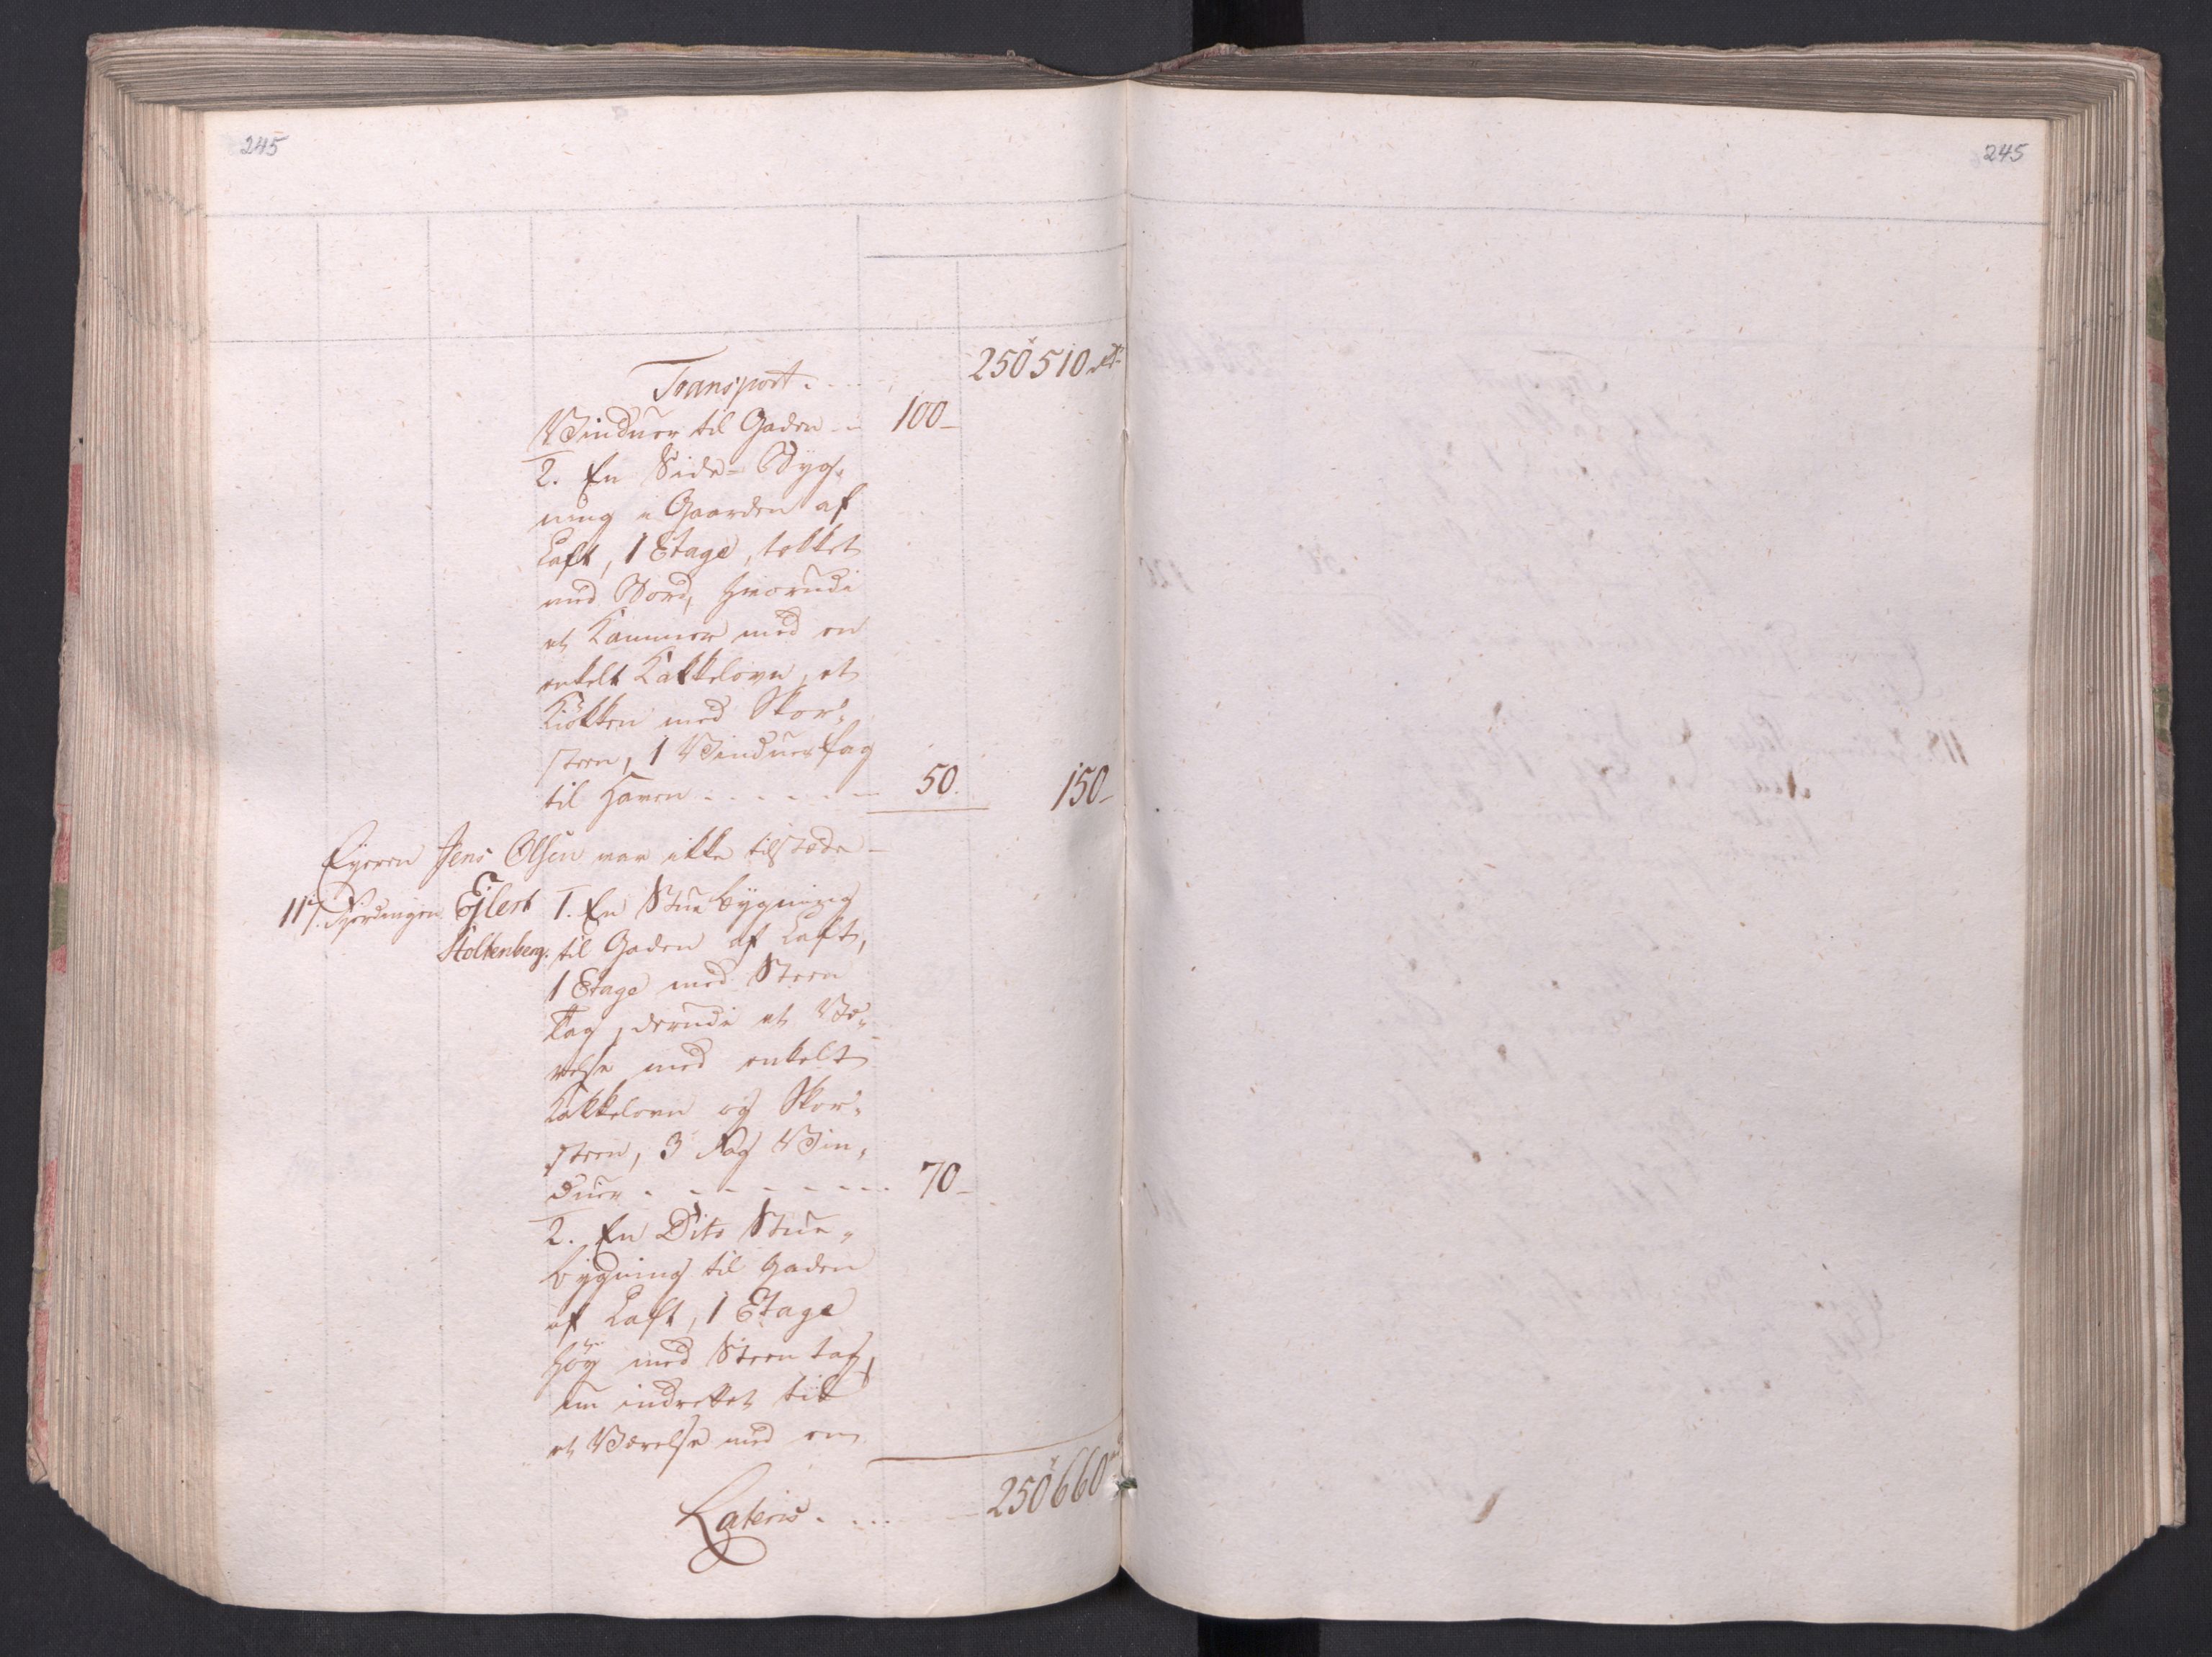 245
245
Transport. 250510 rd.
Vinduer til Gaden - 100-
2. En Side-Byg-
ning i Gaarden af
Laft, 1 Etage, tekket
med Bord, hvorudi
et Kammer med en
enkelt Kakkelovn, et
Kiökken med Skor-
steen, 1 Vinduesfag
til Haven - - - - - 50. 150-
Eyeren Jens Olsen var ikke tilstæde -
117. Fjerdingen Ejlert 1. En Stuebygning
Stoltenberg. til Gaden af Laft,
1 Etage med Steen
Tag, derudi et Væ-
relse med enkelt
Kakkelovn og Skor-
steen, 3 Fag Vin-
duer - - - - - - 70-
2. En Dito Stue-
bygning til Gaden
af Laft, 1 Etage
höy med Steen tag,
indrettet til
et Værelse med en
Lateris. - - - 250660